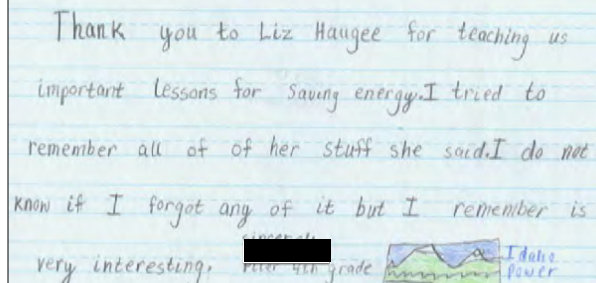 Thank you to Liz Haugee for teaching us
important lessons for saving energy.I tried to
remember all of of her stuff she said.I do not
know if I forgot any of it but I remember is
very interesting. 4th grade
Idaho
Power